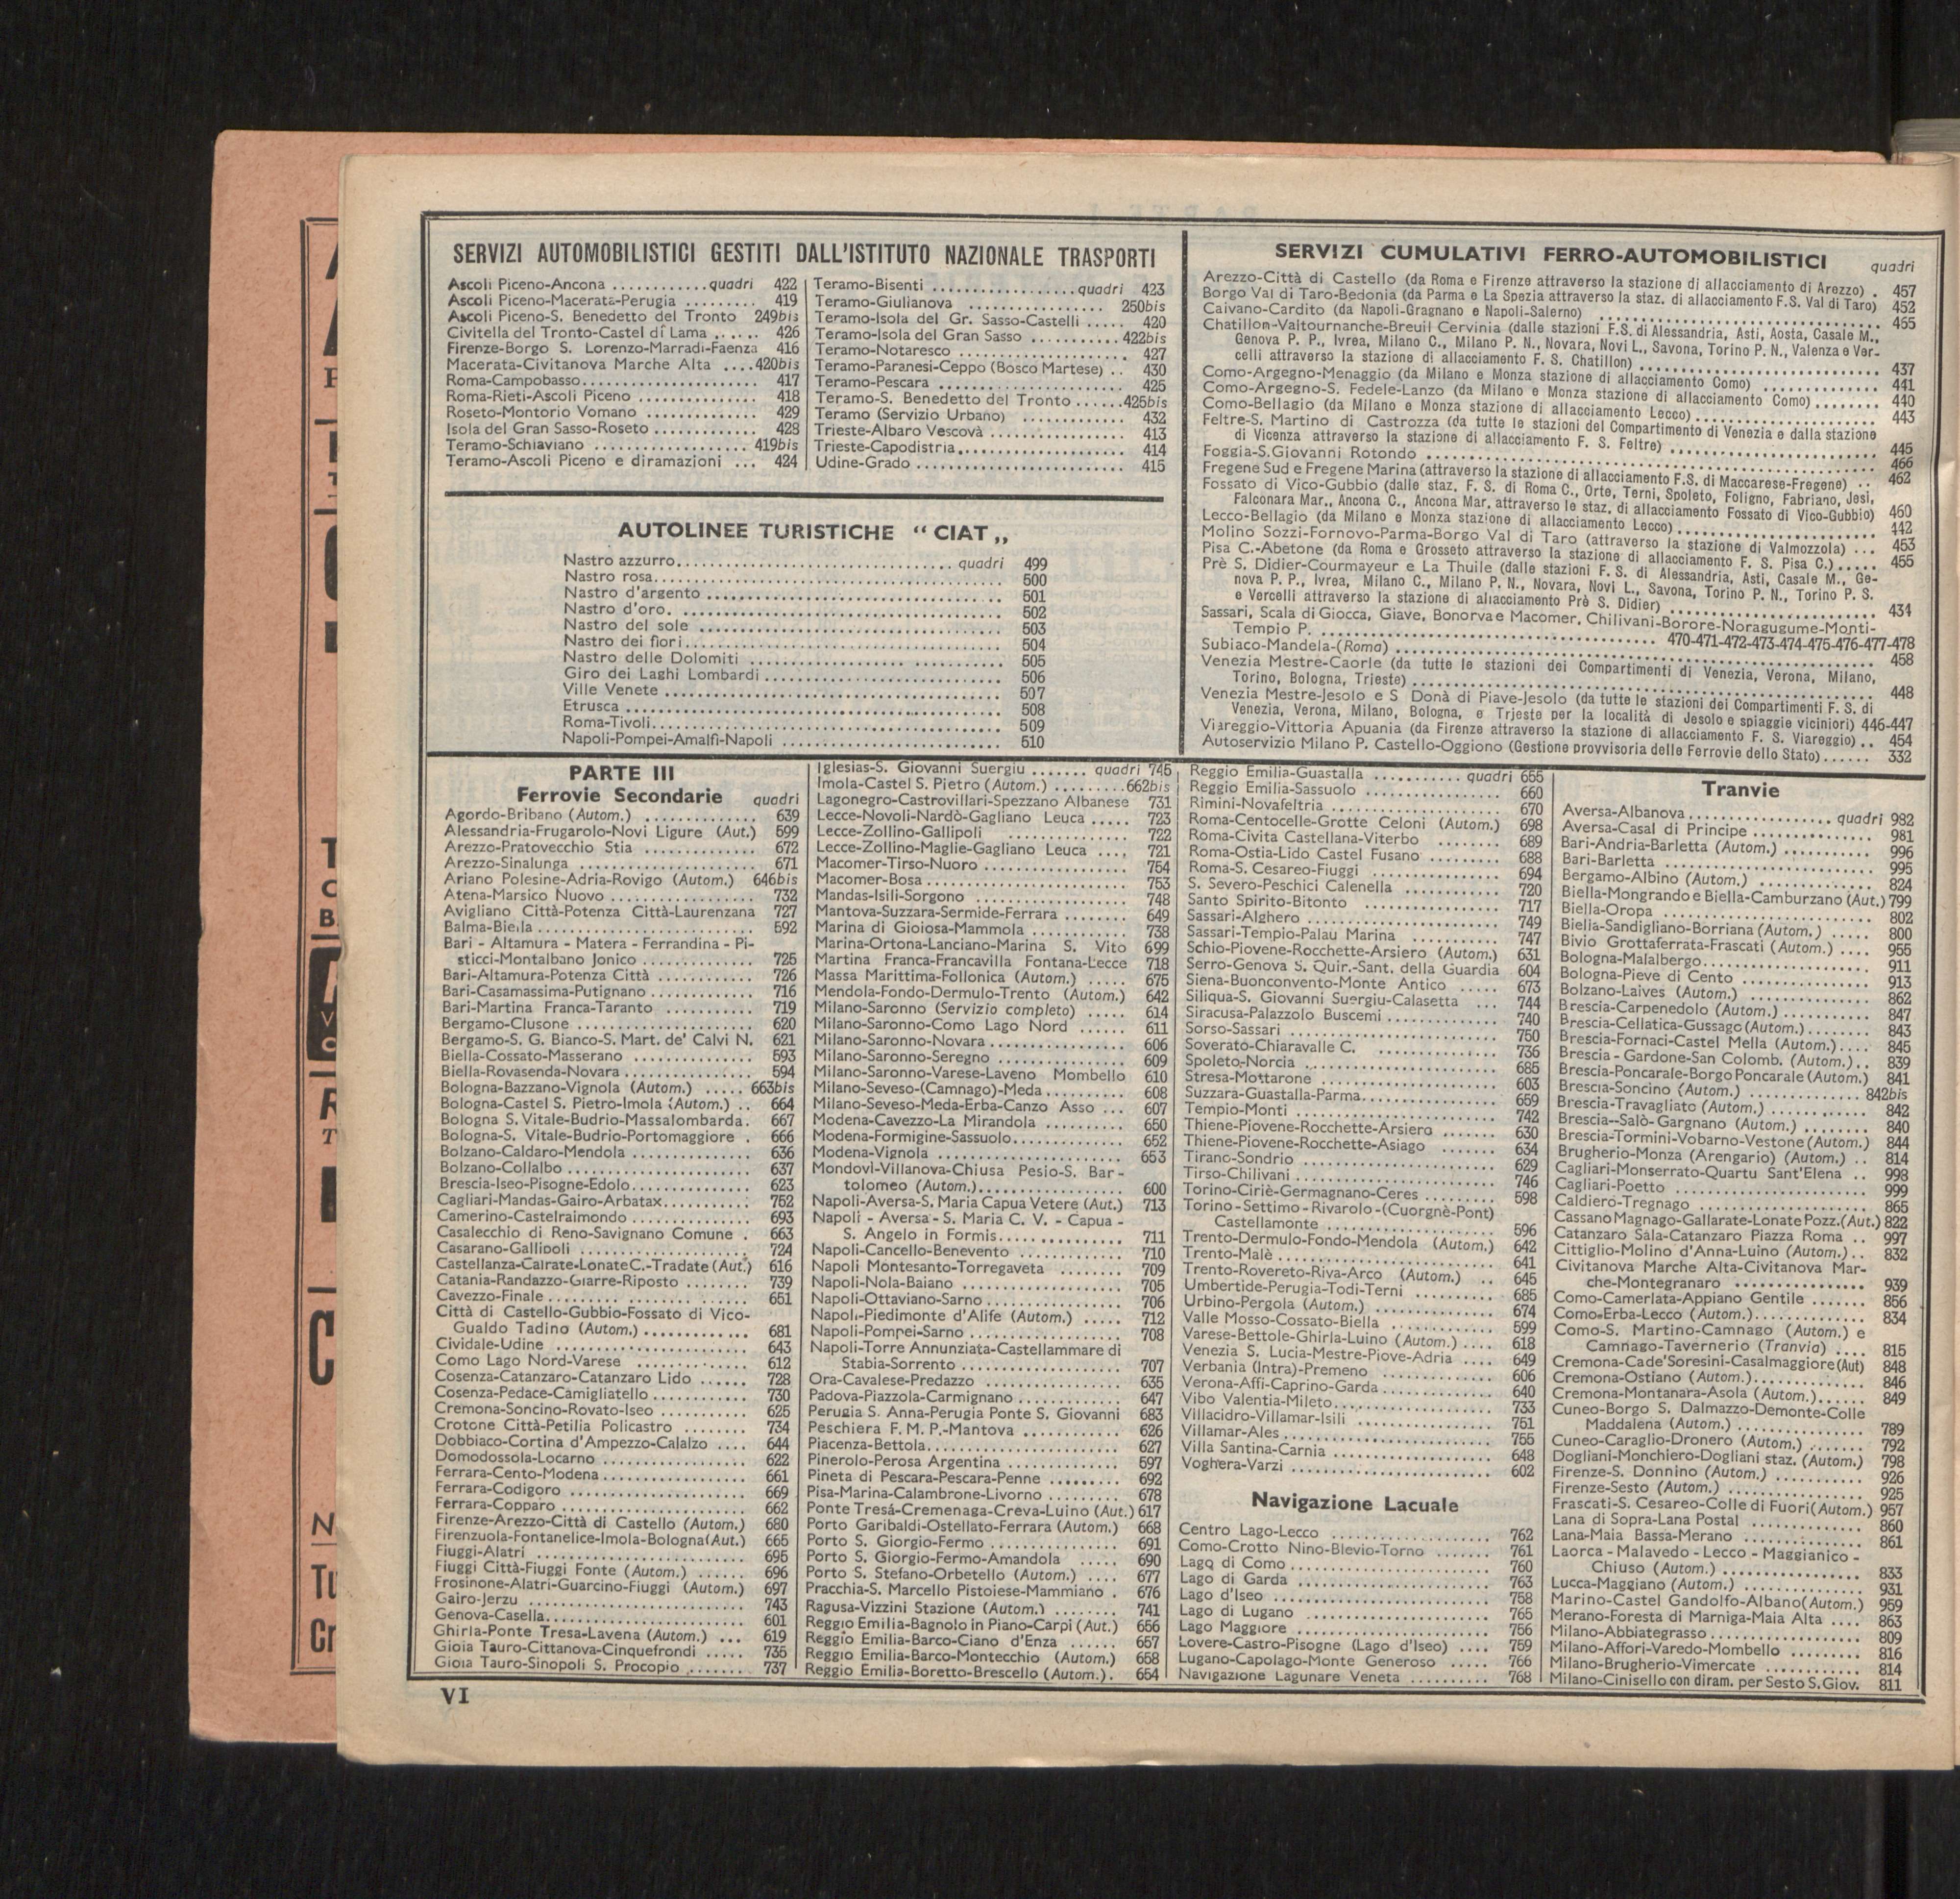 SERVIZI AUTOMOBILISTICI GESTITI DALL'ISTITUTO NAZIONALE TRASPORTI
Ascoli Piceno-Ancona ............quadri 422
Ascoli Piceno-Macerata-Perugia ......... 419
Ascoli Piceno-S. Benedetto del Tronto 249bis
Civitella del Tronto-Castel di Lama ...... 426
Firenze-Borgo S. Lorenzo-Marradi-Faenza 416
Macerata-Civitanova Marche Alta ....420bis
Roma-Campobasso..................... 417
Roma-Rieti-Ascoli Piceno .............. 418
Roseto-Montorio Vomano ............. 429
Isola del Gran Sasso-Roseto ............ 428
Teramo-Schiaviano .................. 419bis
Teramo-Ascoli Piceno e diramazioni ... 424
Teramo-Bisenti ..................quadri 423
Teramo-Giulianova ................ 250bis
Teramo-Isola del Gr. Sasso-Castelli ..... 420
Teramo-Isola del Gran Sasso ...........422bis
Teramo-Notaresco .................... 427
Teramo-Paranesi-Ceppo (Bosco Martese) .. 430
Teramo-Pescara ...................... 425
Teramo-S. Benedetto del Tronto ......425bis
Teramo (Servizio Urbano) ............ 432
Trieste-Albaro Vescovà ................ 413
Trieste-Capodistria.................... 414
Udine-Grado ......................... 415
AUTOLINEE TURISTICHE “ CIAT „
Nastro azzurro................................ quadri 499
Nastro rosa........................................ 500
Nastro d'argento .................................. 501
Nastro d'oro. ..................................... 502
Nastro del sole ................................... 503
Nastro dei fiori................................... 504
Nastro delle Dolomiti ............................. 505
Giro dei Laghi Lombardi ........................... 506
Ville Venete ...................................... 507
Etrusca ........................................... 508
Roma-Tivoli........................................ 509
Napoli-Pompei-Amalfi-Napoli ....................... 510
SERVIZI CUMULATIVI FERRO-AUTOMOBILISTICI
quadri
Arezzo-Città di Castello (da Roma e Firenze attraverso la stazione di allacciamento di Arezzo) . 457
Borgo Val di Taro-Bedonia (da Parma e La Spezia attraverso la staz. di allacciamento F.S. Val di Taro) 452
Caivano-Cardito (da Napoli-Gragnano e Napoli-Salerno) ................ 455
Chatillon-Valtournanche-Breuil Cervinia (dalle stazioni F.S. di Alessandria, Asti, Aosta, Casale M.,
Genova P. P., Ivrea, Milano C., Milano P. N., Novara, Novi L., Savona, Torino P. N., Valenza e Ver-
celli attraverso la stazione di allacciamento F. S. Chatillon) ................ 437
Como-Argegno-Menaggio (da Milano e Monza stazione di allacciamento Como) ............ 441
Como-Argegno-S. Fedele-Lanzo (da Milano e Monza stazione di allacciamento Como) ........ 440
Como-Bellagio (da Milano e Monza stazione di allacciamento Lecco) ................ 443
Feltre-S. Martino di Castrozza (da tutte le stazioni del Compartimento di Venezia e dalla stazione
di Vicenza attraverso la stazione di allacciamento F. S. Feltre) ................ 445
Foggia-S.Giovanni Rotondo ................ 466
Fregene Sud e Fregene Marina (attraverso la stazione di allacciamento F.S. di Maccarese-Fregene) .. 462
Fossato di Vico-Gubbio (dalle staz. F. S. di Roma C., Orte, Terni, Spoleto, Foligno, Fabriano, Jesi,
Falconara Mar., Ancona C., Ancona Mar. attraverso le staz. di allacciamento Fossato di Vico-Gubbio) 460
Lecco-Bellagio (da Milano e Monza stazione di allacciamento Lecco) ................ 442
Molino Sozzi-Fornovo-Parma-Borgo Val di Taro (attraverso la stazione di Valmozzola) ... 453
Pisa C.-Abetone (da Roma e Grosseto attraverso la stazione di allacciamento F. S. Pisa C.)..... 455
Prè S. Didier-Courmayeur e La Thuile (dalle stazioni F. S. di Alessandria, Asti, Casale M., Ge-
nova P. P., Ivrea, Milano C., Milano P. N., Novara, Novi L., Savona, Torino P. N., Torino P. S.
e Vercelli attraverso la stazione di allacciamento Prè S. Didier) ................ 434
Sassari, Scala di Giocca, Giave, Bonorva e Macomer, Chilivani-Borore-Noragugume-Monti-
Tempio P. ................ 470-471-472-473-474-475-476-477-478
Subiaco-Mandela-(Roma) ................ 458
Venezia Mestre-Caorle (da tutte le stazioni dei Compartimenti di Venezia, Verona, Milano,
Torino, Bologna, Trieste) ................ 448
Venezia Mestre-Jesolo e S Donà di Piave-Jesolo (da tutte le stazioni dei Compartimenti F. S. di
Venezia, Verona, Milano, Bologna, e Trieste per la località di Jesolo e spiaggie viciniori) 446-447
Viareggio-Vittoria Apuania (da Firenze attraverso la stazione di allacciamento F. S. Viareggio) .. 454
Autoservizio Milano P. Castello-Oggiono (Gestione provvisoria delle Ferrovie dello Stato) ...... 332
PARTE III
Ferrovie Secondarie quadri
Agordo-Bribano (Autom.) .............. 639
Alessandria-Frugarolo-Novi Ligure (Aut.) 599
Arezzo-Pratovecchio Stia ............. 672
Arezzo-Sinalunga ..................... 671
Ariano Polesine-Adria-Rovigo (Autom.) 646bis
Atena-Marsico Nuovo ................. 732
Avigliano Città-Potenza Città-Laurenzana 727
Balma-Biella ......................... 592
Bari - Altamura - Matera - Ferrandina - Pi-
sticci-Montalbano Jonico ............. 725
Bari-Altamura-Potenza Città ........... 726
Bari-Casamassima-Putignano ............ 716
Bari-Martina Franca-Taranto ........... 719
Bergamo-Clusone ...................... 620
Bergamo-S. G. Bianco-S. Mart. de' Calvi N. 621
Biella-Cossato-Masserano .............. 593
Biella-Rovasenda-Novara ............... 594
Bologna-Bazzano-Vignola (Autom.) ..... 663bis
Bologna-Castel S. Pietro-Imola (Autom.) .. 664
Bologna S. Vitale-Budrio-Massalombarda. 667
Bologna-S. Vitale-Budrio-Portomaggiore . 666
Bolzano-Caldaro-Mendola .............. 636
Bolzano-Collalbo ..................... 637
Brescia-Iseo-Pisogne-Edolo............. 623
Cagliari-Mandas-Gairo-Arbatax.......... 752
Camerino-Castelraimondo .............. 693
Casalecchio di Reno-Savignano Comune . 663
Casarano-Gallipoli .................... 724
Castellanza-Cairate-Lonate C.-Tradate (Aut.) 616
Catania-Randazzo-Giarre-Riposto ........ 739
Cavezzo-Finale ....................... 651
Città di Castello-Gubbio-Fossato di Vico-
Gualdo Tadino (Autom.) ............ 681
Cividale-Udine ....................... 643
Como Lago Nord-Varese .............. 612
Cosenza-Catanzaro-Catanzaro Lido ...... 728
Cosenza-Pedace-Camigliatello ........... 730
Cremona-Soncino-Rovato-Iseo .......... 625
Crotone Città-Petilia Policastro ........ 734
Dobbiaco-Cortina d'Ampezzo-Calalzo .... 644
Domodossola-Locarno ................. 622
Ferrara-Cento-Modena ................. 661
Ferrara-Codigoro ..................... 669
Ferrara-Copparo ...................... 662
Firenze-Arezzo-Città di Castello (Autom.) 680
Firenzuola-Fontanelice-Imola-Bologna (Aut.) 665
Fiuggi-Alatri ......................... 695
Fiuggi Città-Fiuggi Fonte (Autom.) ..... 696
Frosinone-Alatri-Guarcino-Fiuggi (Autom.) 697
Gairo-Jerzu .......................... 743
Genova-Casella....................... 601
Ghirla-Ponte Tresa-Lavena (Autom.) ... 619
Gioia Tauro-Cittanova-Cinquefrondi ..... 735
Gioia Tauro-Sinopoli S. Procopio ........ 737
Iglesias-S. Giovanni Suergiu ....... quadri 745
Imola-Castel S. Pietro (Autom.) .........662bis
Lagonegro-Castrovillari-Spezzano Albanese 731
Lecce-Novoli-Nardò-Gagliano Leuca ..... 723
Lecce-Zollino-Gallipoli ............... 722
Lecce-Zollino-Maglie-Gagliano Leuca .... 721
Macomer-Tirso-Nuoro ................. 754
Macomer-Bosa ........................ 753
Mandas-Isili-Sorgono .................. 748
Mantova-Suzzara-Sermide-Ferrara ........ 649
Marina di Gioiosa-Mammola ............ 738
Marina-Ortona-Lanciano-Marina S. Vito 699
Martina Franca-Francavilla Fontana-Lecce 718
Massa Marittima-Follonica (Autom.) ..... 675
Mendola-Fondo-Dermulo-Trento (Autom.) 642
Milano-Saronno (Servizio completo) ..... 614
Milano-Saronno-Como Lago Nord ...... 611
Milano-Saronno-Novara ................ 606
Milano-Saronno-Seregno ............... 609
Milano-Saronno-Varese-Laveno Mombello 610
Milano-Seveso-(Camnago)-Meda .......... 608
Milano-Seveso-Meda-Erba-Canzo Asso ... 607
Modena-Cavezzo-La Mirandola .......... 650
Modena-Formigine-Sassuolo.............. 652
Modena-Vignola ...................... 653
Mondovì-Villanova-Chiusa Pesio-S. Bar-
tolomeo (Autom.).................. 600
Napoli-Aversa-S. Maria Capua Vetere (Aut.) 713
Napoli - Aversa - S. Maria C. V. - Capua -
S. Angelo in Formis............... 711
Napoli-Cancello-Benevento ............ 710
Napoli Montesanto-Torregaveta ........ 709
Napoli-Nola-Baiano ................... 705
Napoli-Ottaviano-Sarno................ 706
Napoli-Piedimonte d'Alife (Autom.) ..... 712
Napoli-Pompei-Sarno .................. 708
Napoli-Torre Annunziata-Castellammare di
Stabia-Sorrento .................... 707
Ora-Cavalese-Predazzo ................ 635
Padova-Piazzola-Carmignano ............ 647
Perugia S. Anna-Perugia Ponte S. Giovanni 683
Peschiera F. M. P.-Mantova ............ 626
Piacenza-Bettola...................... 627
Pinerolo-Perosa Argentina ............. 597
Pineta di Pescara-Pescara-Penne ......... 692
Pisa-Marina-Calambrone-Livorno ......... 678
Ponte Tresá-Cremenaga-Creva-Luino (Aut.) 617
Porto Garibaldi-Ostellato-Ferrara (Autom.) 668
Porto S. Giorgio-Fermo ............... 691
Porto S. Giorgio-Fermo-Amandola ..... 690
Porto S. Stefano-Orbetello (Autom.) .... 677
Pracchia-S. Marcello Pistoiese-Mammiano . 676
Ragusa-Vizzini Stazione (Autom.) ........ 741
Reggio Emilia-Bagnolo in Piano-Carpi (Aut.) 656
Reggio Emilia-Barco-Ciano d'Enza ...... 657
Reggio Emilia-Barco-Montecchio (Autom.) 658
Reggio Emilia-Boretto-Brescello (Autom.). 654
Reggio Emilia-Guastalla ........... quadri 655
Reggio Emilia-Sassuolo ................ 660
Rimini-Novafeltria .................... 670
Roma-Centocelle-Grotte Celoni (Autom.) 698
Roma-Civita Castellana-Viterbo ........ 689
Roma-Ostia-Lido Castel Fusano ........ 688
Roma-S. Cesareo-Fiuggi ............... 694
S. Severo-Peschici Calenella ........... 720
Santo Spirito-Bitonto ................. 717
Sassari-Alghero ...................... 749
Sassari-Tempio-Palau Marina .......... 747
Schio-Piovene-Rocchette-Arsiero (Autom.) 631
Serro-Genova S. Quir.-Sant. della Guardia 604
Siena-Buonconvento-Monte Antico ..... 673
Siliqua-S. Giovanni Suergiu-Calasetta ... 744
Siracusa-Palazzolo Buscemi ............. 740
Sorso-Sassari ........................ 750
Soverato-Chiaravalle C. .............. 736
Spoleto-Norcia ....................... 685
Stresa-Mottarone ..................... 603
Suzzara-Guastalla-Parma................ 659
Tempio-Monti ........................ 742
Thiene-Piovene-Rocchette-Arsiero ....... 630
Thiene-Piovene-Rocchette-Asiago ....... 634
Tirano-Sondrio ....................... 629
Tirso-Chilivani ....................... 746
Torino-Ciriè-Germagnano-Ceres ......... 598
Torino - Settimo - Rivarolo - (Cuorgnè-Pont)
Castellamonte ..................... 596
Trento-Dermulo-Fondo-Mendola (Autom.) 642
Trento-Malè ......................... 641
Trento-Rovereto-Riva-Arco (Autom.) .. 645
Umbertide-Perugia-Todi-Terni .......... 685
Urbino-Pergola (Autom.) ............... 674
Valle Mosso-Cossato-Biella ............. 599
Varese-Bettole-Ghirla-Luino (Autom.) .... 618
Venezia S. Lucia-Mestre-Piove-Adria .... 649
Verbania (Intra)-Premeno .............. 606
Verona-Affi-Caprino-Garda ............. 640
Vibo Valentia-Mileto................... 733
Villacidro-Villamar-Isili ................ 751
Villamar-Ales ........................ 755
Villa Santina-Carnia ................... 648
Voghera-Varzi ........................ 602
Navigazione Lacuale
Centro Lago-Lecco .................... 762
Como-Crotto Nino-Blevio-Torno ....... 761
Lago di Como ........................ 760
Lago di Garda ........................ 763
Lago d'Iseo .......................... 758
Lago di Lugano ...................... 765
Lago Maggiore ....................... 756
Lovere-Castro-Pisogne (Lago d'Iseo) .... 759
Lugano-Capolago-Monte Generoso ..... 766
Navigazione Lagunare Veneta .......... 768
Tranvie
Aversa-Albanova ................. quadri 982
Aversa-Casal di Principe ............... 981
Bari-Andria-Barletta (Autom.) .......... 996
Bari-Barletta ......................... 995
Bergamo-Albino (Autom.) .............. 824
Biella-Mongrando e Biella-Camburzano (Aut.) 799
Biella-Oropa ......................... 802
Biella-Sandigliano-Borriana (Autom.) ..... 800
Bivio Grottaferrata-Frascati (Autom.) .... 955
Bologna-Malalbergo.................... 911
Bologna-Pieve di Cento ................ 913
Bolzano-Laives (Autom.) ............... 862
Brescia-Carpenedolo (Autom.) .......... 847
Brescia-Cellatica-Gussago (Autom.)........ 843
Brescia-Fornaci-Castel Mella (Autom.).... 845
Brescia - Gardone-San Colomb. (Autom.).. 839
Brescia-Poncarale-Borgo Poncarale (Autom.) 841
Brescia-Soncino (Autom.) ..............842bis
Brescia-Travagliato (Autom.) ............ 842
Brescia--Salò-Gargnano (Autom.) ........ 840
Brescia-Tormini-Vobarno-Vestone (Autom.) 844
Brugherio-Monza (Arengario) (Autom.) .. 814
Cagliari-Monserrato-Quartu Sant'Elena .. 998
Cagliari-Poetto ....................... 999
Caldiero-Tregnago .................... 865
Cassano Magnago-Gallarate-Lonate Pozz.(Aut.) 822
Catanzaro Sala-Catanzaro Piazza Roma .. 997
Cittiglio-Molino d'Anna-Luino (Autom.).. 832
Civitanova Marche Alta-Civitanova Mar-
che-Montegranaro ................. 939
Como-Camerlata-Appiano Gentile ....... 856
Como-Erba-Lecco (Autom.)............. 834
Como-S. Martino-Camnago (Autom.) e
Camnago-Tavernerio (Tranvia) .... 815
Cremona-Cade'Soresini-Casalmaggiore (Aut) 848
Cremona-Ostiano (Autom.).............. 846
Cremona-Montanara-Asola (Autom.)...... 849
Cuneo-Borgo S. Dalmazzo-Demonte-Colle
Maddalena (Autom.) ............... 789
Cuneo-Caraglio-Dronero (Autom.) ....... 792
Dogliani-Monchiero-Dogliani staz. (Autom.) 798
Firenze-S. Donnino (Autom.) ........... 926
Firenze-Sesto (Autom.) ................ 925
Frascati-S. Cesareo-Colle di Fuori (Autom.) 957
Lana di Sopra-Lana Postal ............ 860
Lana-Maia Bassa-Merano .............. 861
Laorca - Malavedo - Lecco - Maggianico -
Chiuso (Autom.) .................. 833
Lucca-Maggiano (Autom.) .............. 931
Marino-Castel Gandolfo-Albano (Autom.) 959
Merano-Foresta di Marniga-Maia Alta .... 863
Milano-Abbiategrasso .................. 809
Milano-Affori-Varedo-Mombello ......... 816
Milano-Brugherio-Vimercate ............ 814
Milano-Cinisello con diram. per Sesto S.Giov. 811
VI